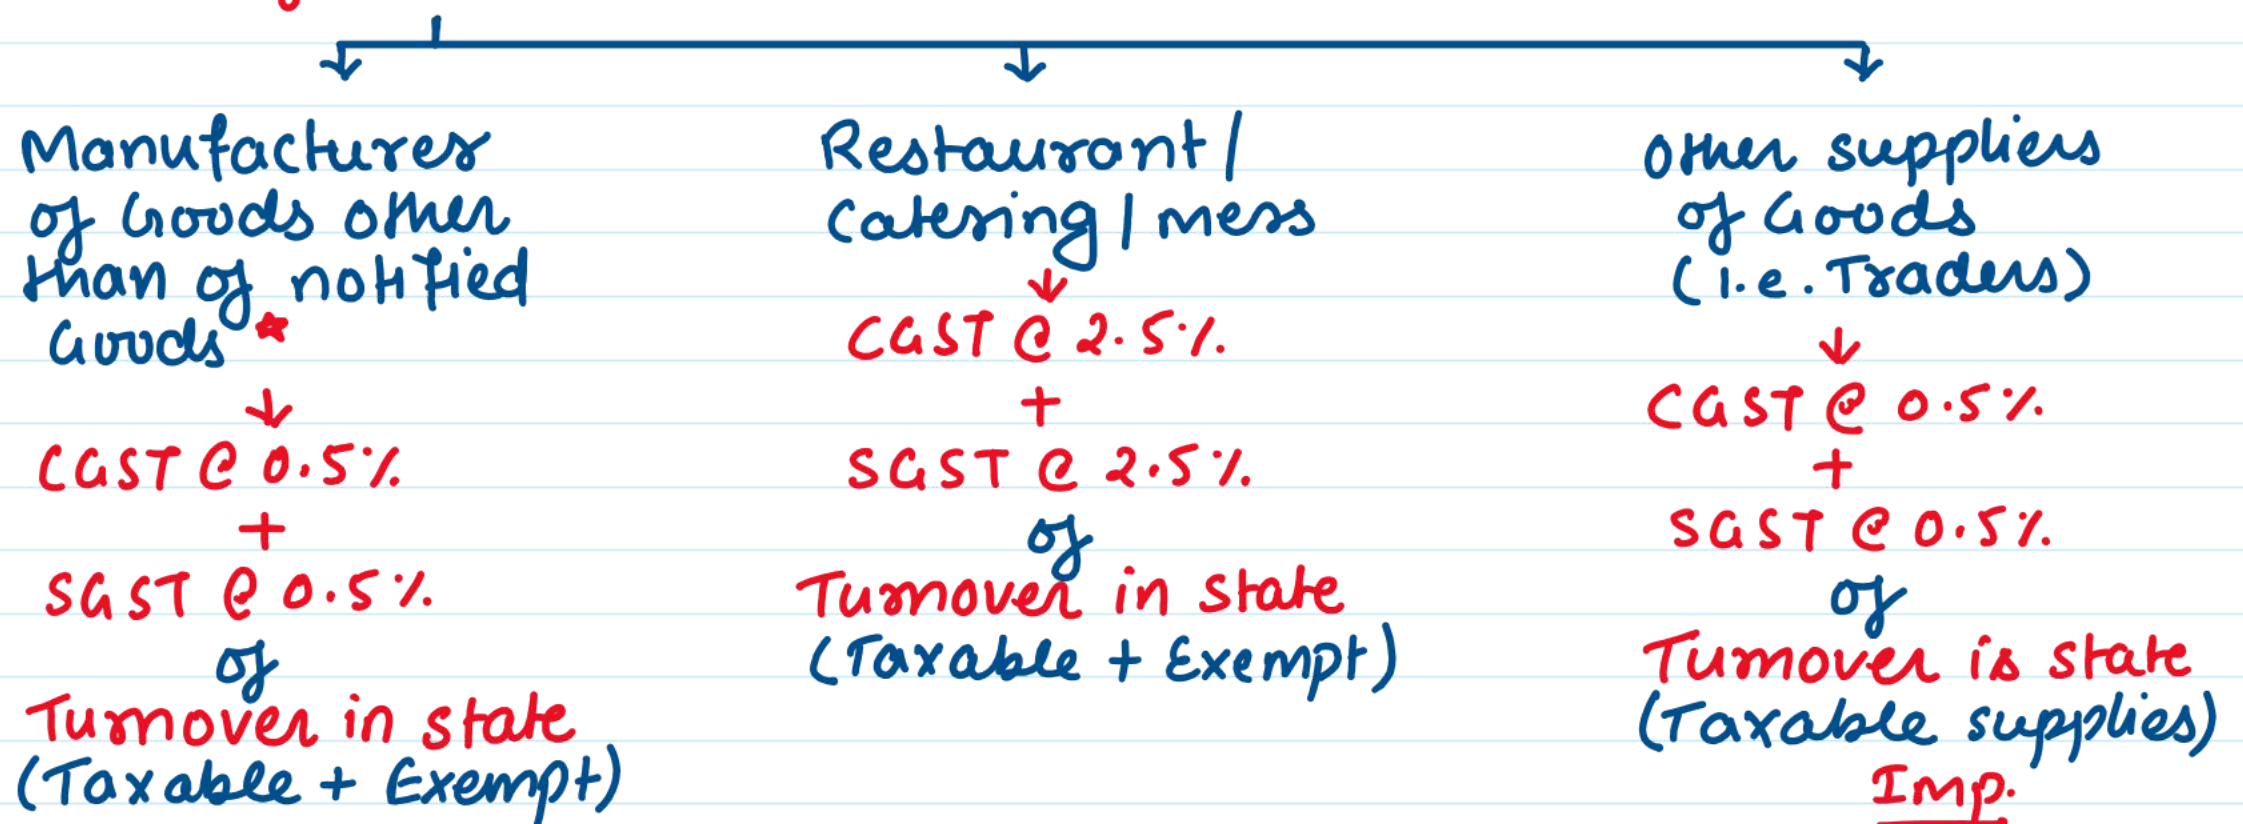 Manufacturer
of Goods other
than of notified
Goods *
↓
CGST @ 0.5%
+
SGST @ 0.5%
of
Turnover in state
(Taxable + Exempt)
Restaurant /
Catering / mess
↓
CGST @ 2.5%
+
SGST @ 2.5%
of
Turnover in state
(Taxable + Exempt)
other suppliers
of Goods
(i.e. Traders)
↓
CGST @ 0.5%
+
SGST @ 0.5%
of
Turnover is state
(Taxable supplies)
Imp.